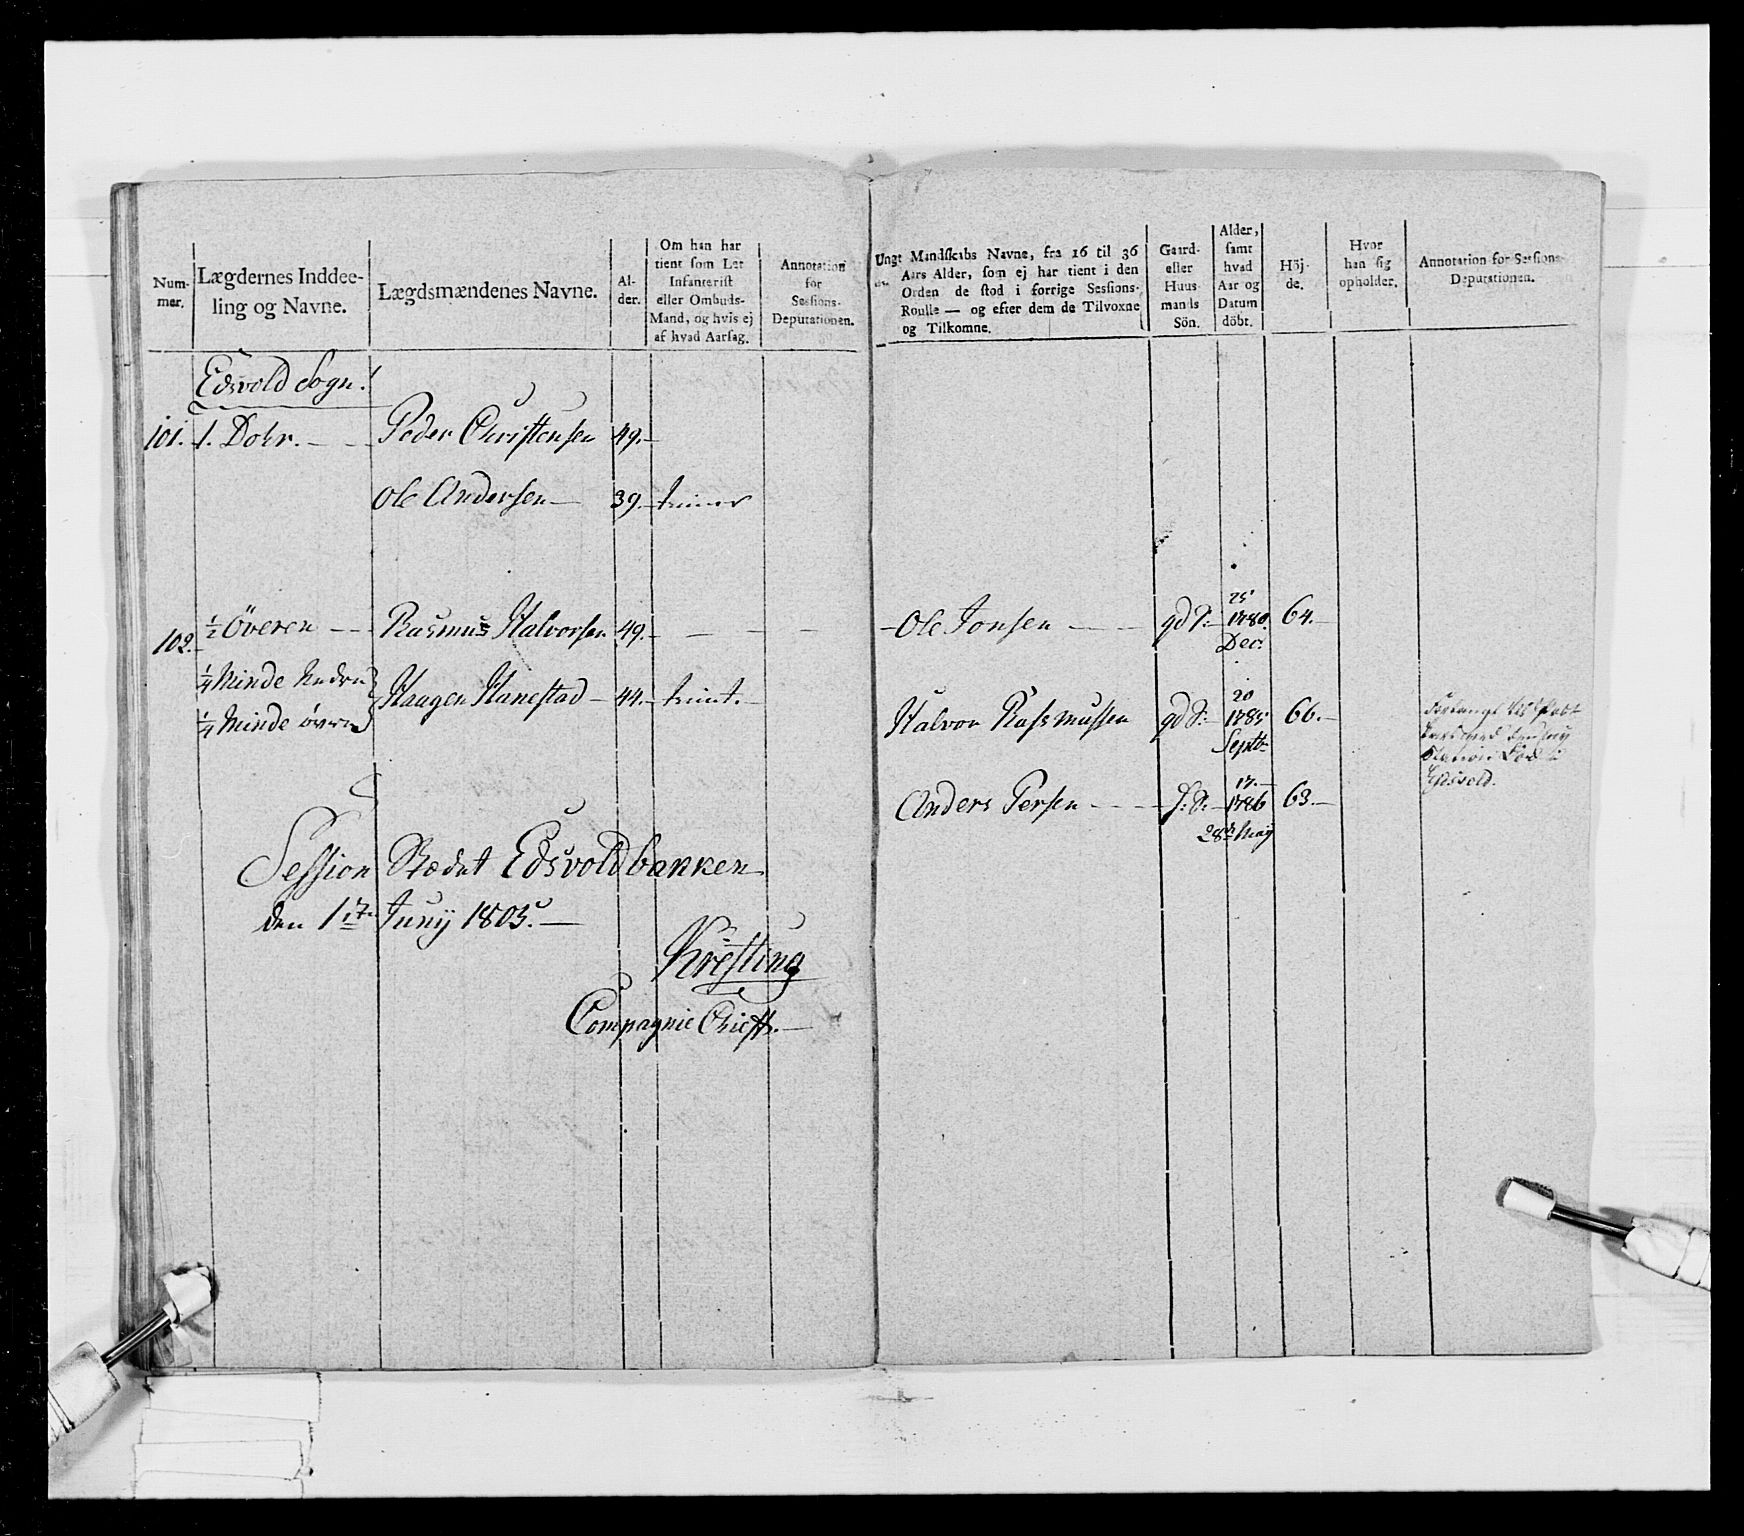 Num-
mer.
Lægdernes Inddee-
ling og Navne.
Lægdsmændenes Navne.
Al-
der.
Om han har
tient som Let
Infanterist
eller Ombuds-
Mand, og hvis ej
af hvad Aarsag.
Annotation
for
Sessions-
Deputationen.
Edsvold Sogn!
101. 1. Dohr. - - Peder Christensen 49.-
Ole Andersen - 39.-
102. ½ Øveren - - Rasmus Halvorsen 49.- - - -
¼ Minde Nedre
¼ Minde øvere
Haagen Hanestad - 44.- tient.-
Session Stædet Edsvoldbakken
den 17 Junij 1803.-
Compagnie Chieff.-
Ungt Mandskabs Navne, fra 16 til 36
Aars Alder, som ej har tient i den
Orden de stod i forrige Sessions-
Roulle — og efter dem de Tilvoxne
og Tilkomne.
Gaard-
eller
Huus-
mands
Sön.
Alder,
samt
hvad
Aar og
Datum
döbt.
Höj-
de.
Hvor
han sig
opholder.
Annotation for Sessions-
Deputationen.
25
-Ole Jonsen - - gd S:- 1780. 64.-
Dec:
20
Halvor Rasmussen gd S:- 1785 66.-
Septbr
17.-
Anders Persen - - - S:- 1786 63.-
28de Maij
Edsvold.